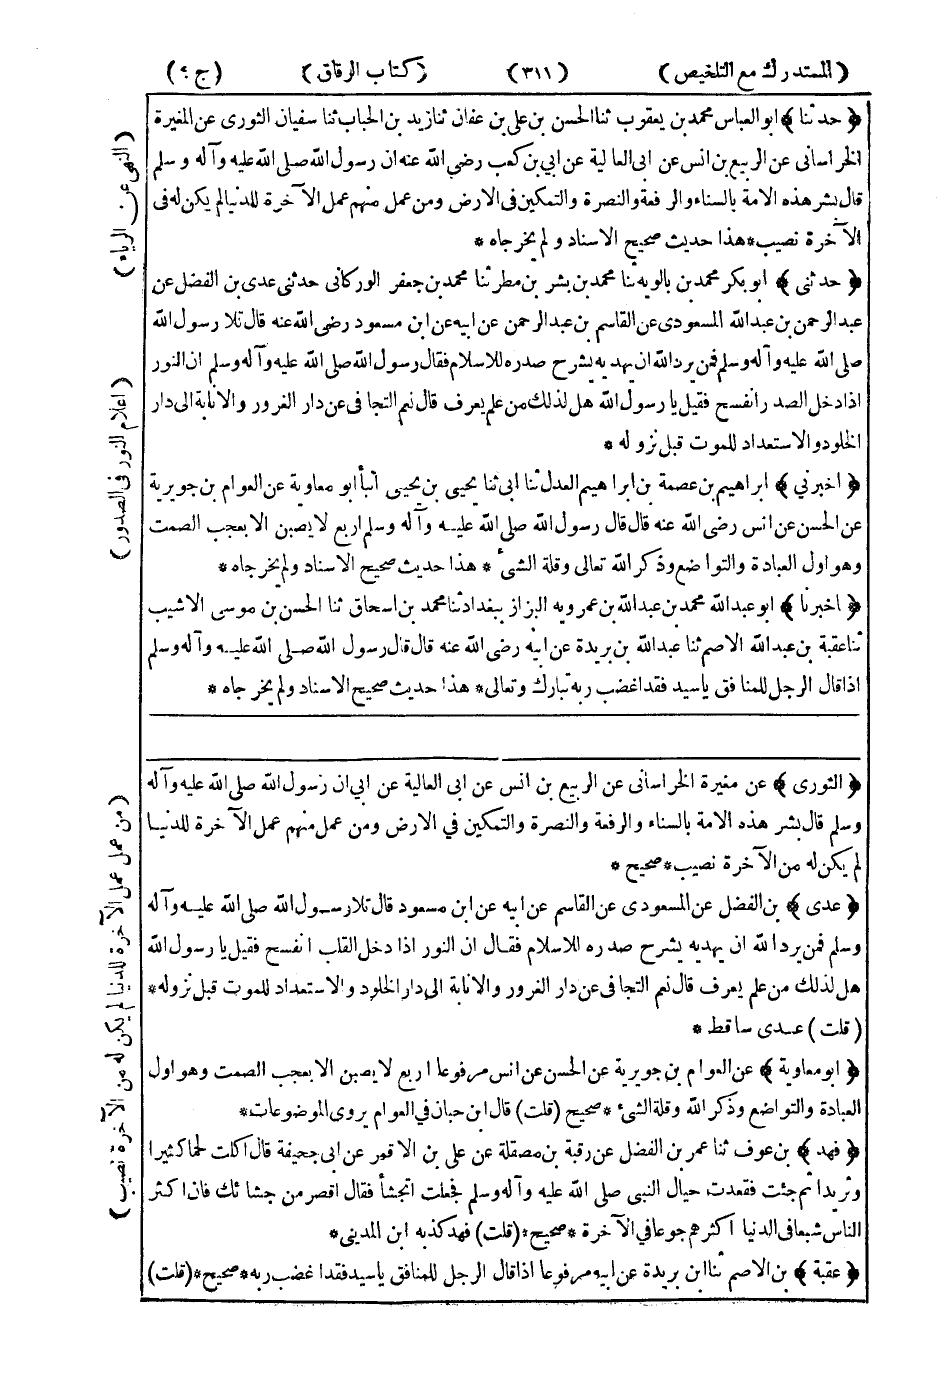 (المستدرك مع التلخيص) (٣١١) (كتاب الرقاق) (ج ٤)
﴿ حدثنا ﴾ ابو العباس محمد بن يعقوب ثنا الحسن بن على بن عفان ثنا زيد بن الحباب ثنا سفيان الثورى عن المغيرة
الخراسانى عن الربيع بن انس عن ابى العالية عن ابي بن كعب رضي الله عنه ان رسول الله صلى الله عليه وآله وسلم
قال بشر هذه الامة بالسناء والرفعة والنصرة والتمكين فى الارض ومن عمل منهم عمل الآخرة للدنيا لم يكن له فى
الآخرة نصيب * هذا حديث صحيح الاسناد ولم يخرجاه *
﴿ حدثنى ﴾ ابو بكر محمد بن بالويه ثنا محمد بن بشر بن مطر ثنا محمد بن جعفر الوركانى حدثنى عدى بن الفضل عن
عبد الرحمن بن عبد الله المسعودى عن القاسم بن عبد الرحمن عن ابيه عن ابن مسعود رضى الله عنه قال تلا رسول الله
صلى الله عليه وآله وسلم فمن يرد الله ان يهديه يشرح صدره للاسلام فقال رسول الله صلى الله عليه وآله وسلم ان النور
اذا دخل الصدر انفسح فقيل يا رسول الله هل لذلك من علم يعرف قال نعم التجافى عن دار الغرور والانابة الى دار
الخلود والاستعداد للموت قبل نزوله *
﴿ اخبرني ﴾ ابراهيم بن عصمة بن ابراهيم العدل ثنا ابى ثنا يحيى بن يحيى أنبأ ابو معاوية عن العوام بن جويرية
عن الحسن عن انس رضى الله عنه قال قال رسول الله صلى الله عليه وآله وسلم اربع لا يصبن الا بعجب الصمت
وهو اول العبادة والتواضع وذكر الله تعالى وقلة الشئ * هذا حديث صحيح الاسناد ولم يخرجاه *
﴿ اخبرنا ﴾ ابو عبد الله محمد بن عبد الله بن عمرويه البزاز ببغداد ثنا محمد بن اسحاق ثنا الحسن بن موسى الاشيب
ثنا عقبة بن عبد الله الاصم ثنا عبد الله بن بريدة عن ابيه رضى الله عنه قال قال رسول الله صلى الله عليه وآله وسلم
اذا قال الرجل للمنافق يا سيد فقد اغضب ربه تبارك وتعالى * هذا حديث صحيح الاسناد ولم يخرجاه *
﴿ الثورى ﴾ عن مغيرة الخراسانى عن الربيع بن انس عن ابى العالية عن ابي ان رسول الله صلى الله عليه وآله
وسلم قال بشر هذه الامة بالسناء والرفعة والنصرة والتمكين في الارض ومن عمل منهم عمل الآخرة للدنيا
لم يكن له من الآخرة نصيب * صحيح *
﴿ عدى ﴾ بن الفضل عن المسعودى عن القاسم عن ابيه عن ابن مسعود قال تلا رسول الله صلى الله عليه وآله
وسلم فمن يرد الله ان يهديه يشرح صدره للاسلام فقال ان النور اذا دخل القلب انفسح فقيل يا رسول الله
هل لذلك من علم يعرف قال نعم التجافى عن دار الغرور والانابة الى دار الخلود والاستعداد للموت قبل نزوله *
(قلت) عدى ساقط *
﴿ ابو معاوية ﴾ عن العوام بن جويرية عن الحسن عن انس مرفوعا اربع لا يصبن الا بعجب الصمت وهو اول
العبادة والتواضع وذكر الله وقلة الشئ * صحيح (قلت) قال ابن حبان في العوام يروى الموضوعات *
﴿ فهد ﴾ بن عوف ثنا عمر بن الفضل عن رقبة بن مصقلة عن على بن الاقمر عن ابى جحيفة قال أكلت لحما كثيرا
وثريدا ثم جئت فقعدت حيال النبى صلى الله عليه وآله وسلم فجعلت اتجشأ فقال اقصر من جشائك فان اكثر
الناس شبعا فى الدنيا اكثرهم جوعا في الآخرة * صحيح * (قلت) فهد كذبه ابن المديني *
﴿ عقبة ﴾ بن الاصم ثنا ابن بريدة عن ابيه مرفوعا اذا قال الرجل للمنافق يا سيد فقد اغضب ربه * صحيح * (قلت)
(النهى عن الرياء)
(اعلام النور فى الصدور)
(من عمل عمل الآخرة للدنيا لم يكن له من الآخرة نصيب)